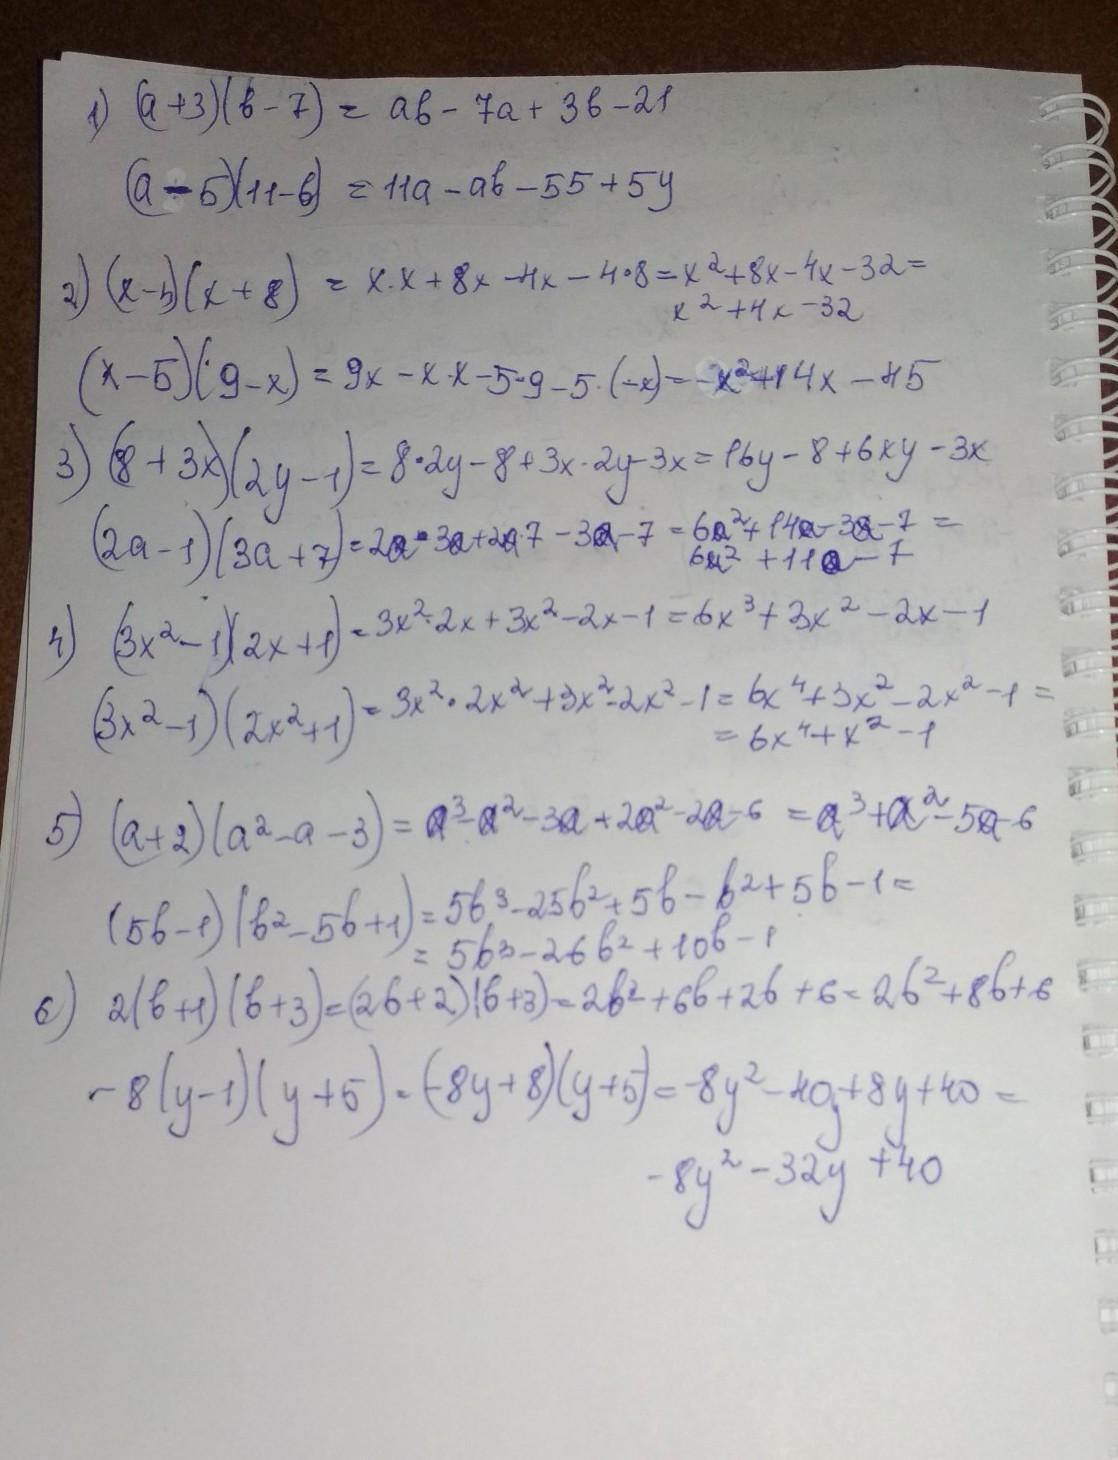 1) (a+3)(b-7) = ab - 7a + 3b - 21
(a-5)(11-b) = 11a - ab - 55 + 5y
2) (x-4)(x+8) = x·x + 8x - 4x - 4·8 = x²+8x-4x-32 =
x²+4x-32
(x-5)(9-x) = 9x - x·x - 5·9 - 5·(-x) = -x²+14x-45
3) (8+3x)(2y-1) = 8·2y-8+3x·2y-3x = 16y-8+6xy-3x
(2a-1)(3a+7) = 2a·3a+2a·7-3a-7 = 6a²+14a-3a-7 =
6a²+11a-7
4) (3x²-1)(2x+1) = 3x²·2x+3x²-2x-1 = 6x³+3x²-2x-1
(3x²-1)(2x²+1) = 3x²·2x²+3x²-2x²-1 = 6x⁴+3x²-2x²-1 =
= 6x⁴+x²-1
5) (a+2)(a²-a-3) = a³-a²-3a+2a²-2a-6 = a³+a²-5a-6
(5b-1)(b²-5b+1) = 5b³-25b²+5b-b²+5b-1 =
= 5b³-26b²+10b-1
6) 2(b+1)(b+3) = (2b+2)(b+3) = 2b²+6b+2b+6 = 2b²+8b+6
-8(y-1)(y+5) = (-8y+8)(y+5) = -8y²-40y+8y+40 =
-8y²-32y+40